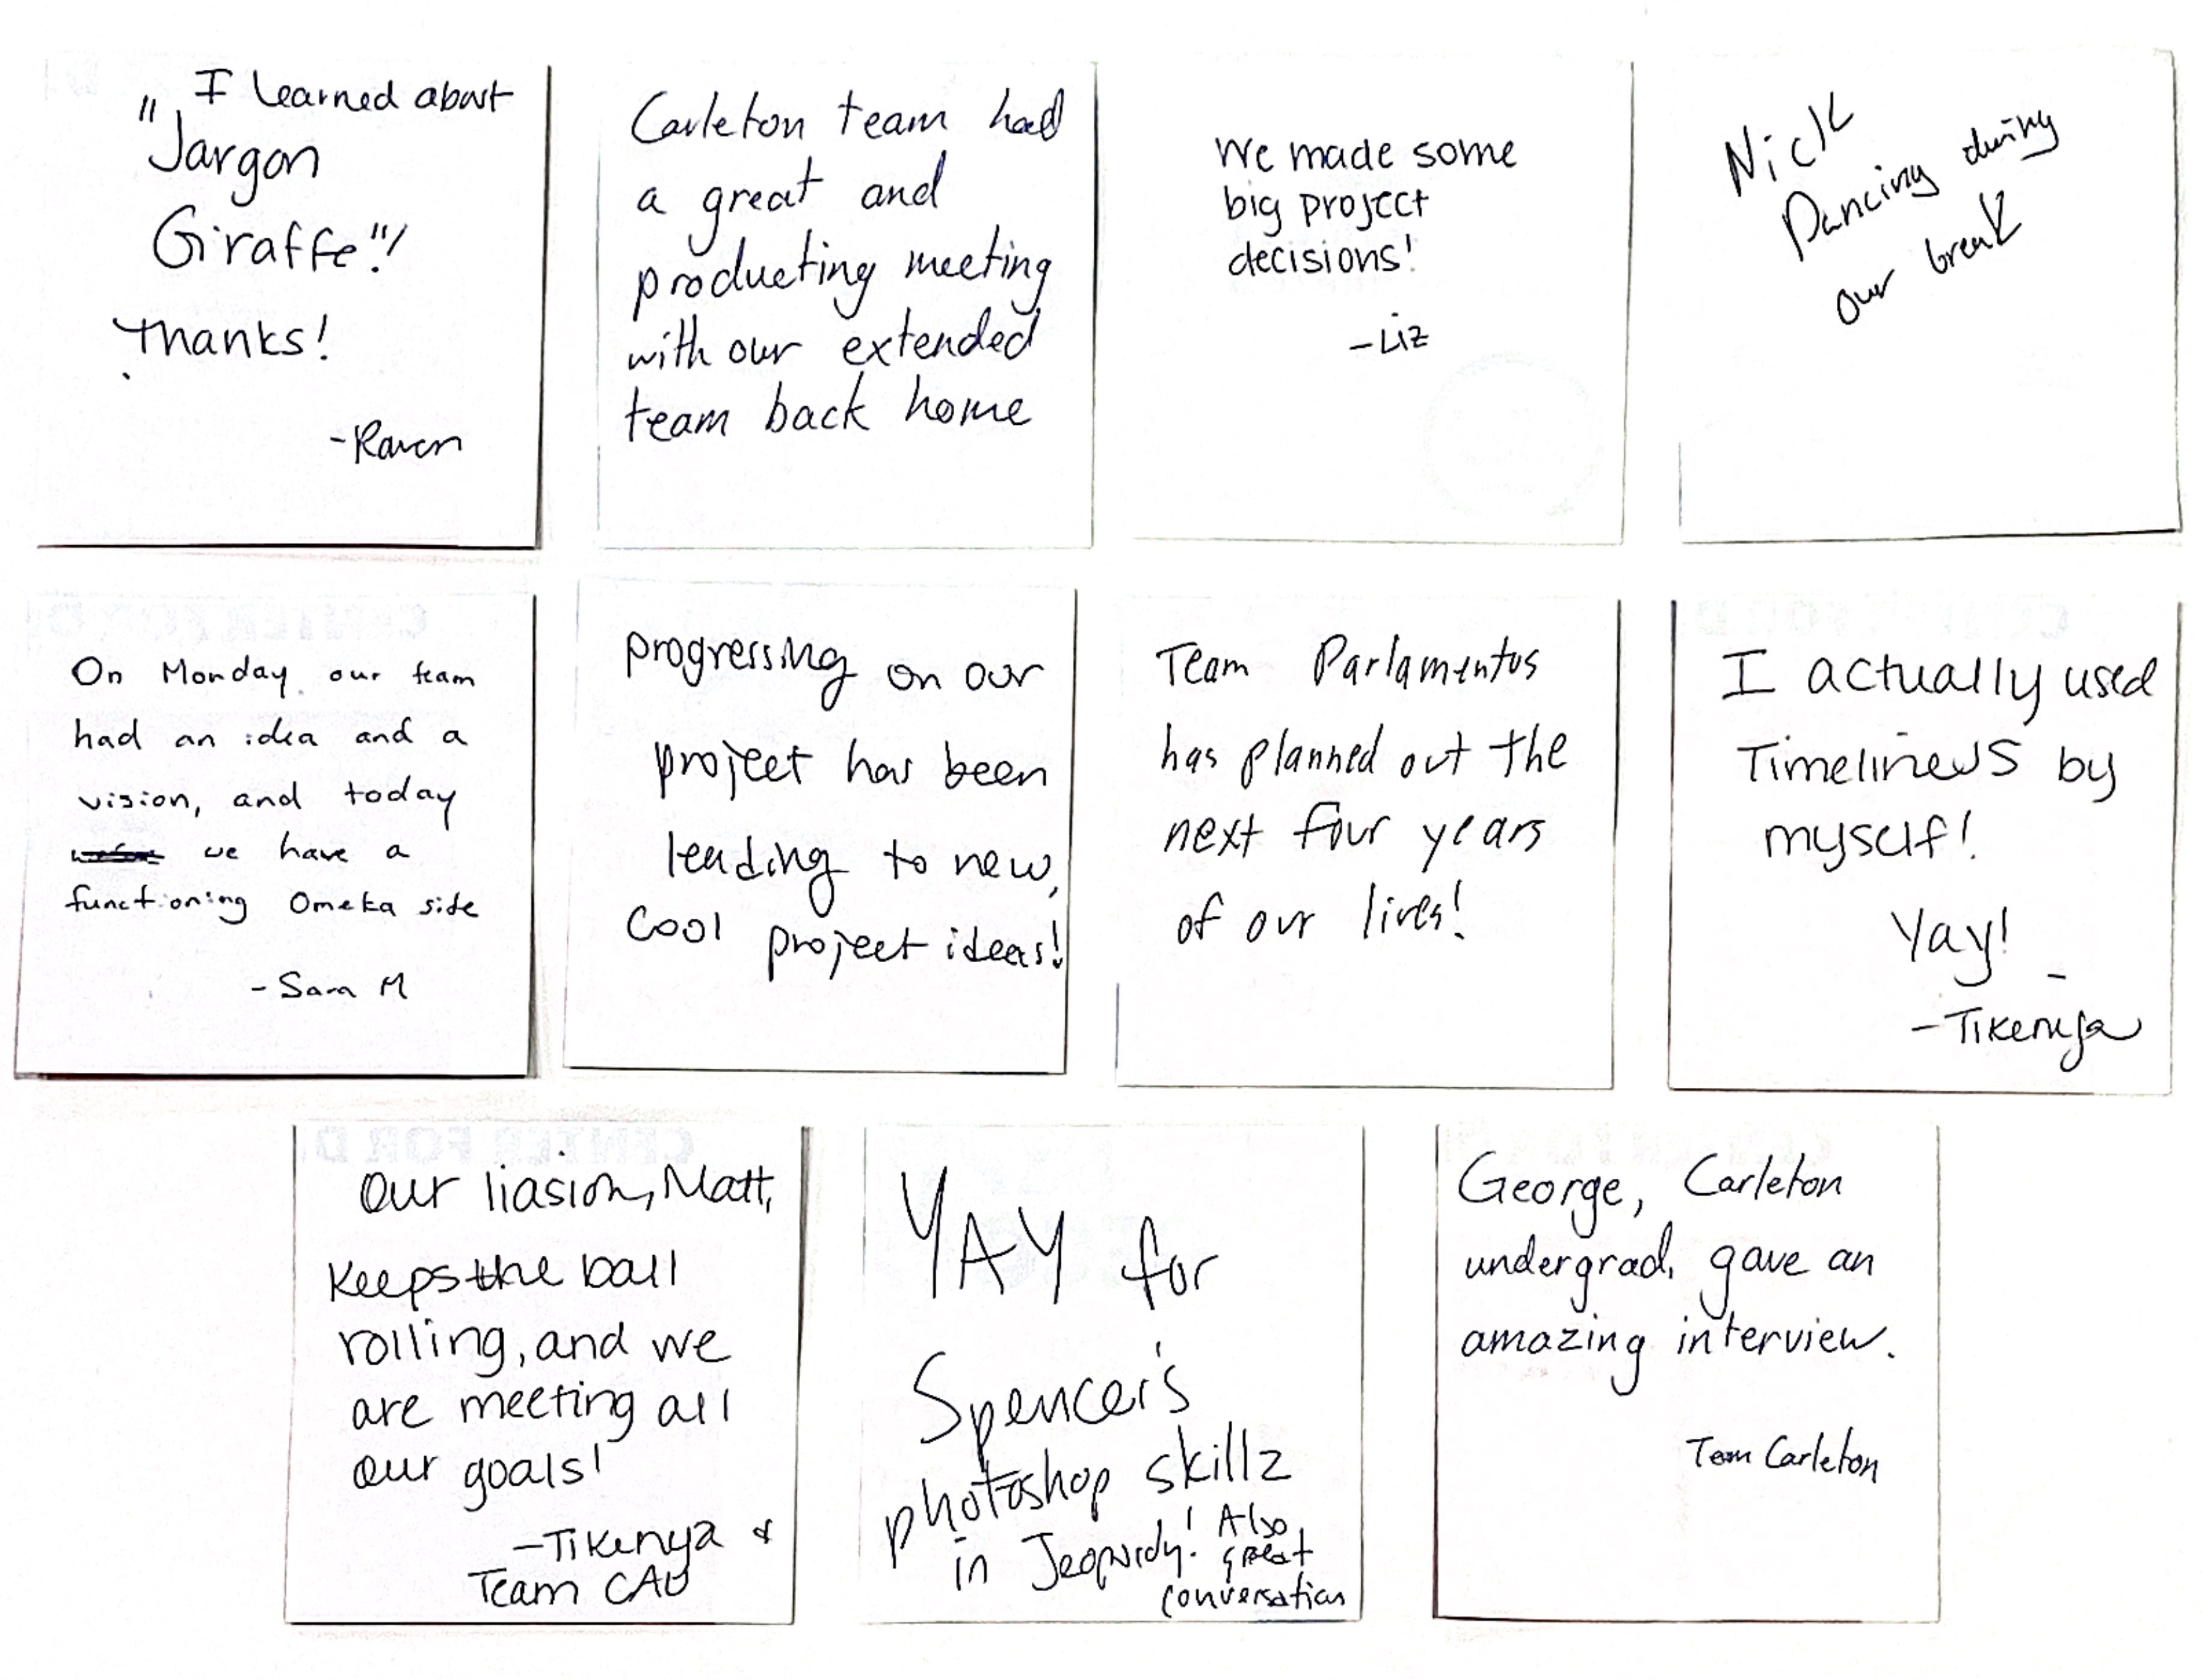 I learned about
"Jargon
Giraffe"!
Thanks!
-Raven
Carleton team had
a great and
producting meeting
with our extended
team back home
We made some
big project
decisions!
-Liz
Nick
Dancing during
our break
On Monday our team
had an idea and a
vision, and today
we have a
functioning Omeka side
-Sara M
progressing on our
project has been
leading to new,
cool project ideas!
Team Parlamentos
has planned out the
next four years
of our lives!
I actually used
TimelineJS by
myself!
Yay!
-Tikenya
Our liasion, Matt,
keeps the ball
rolling, and we
are meeting all
our goals!
-Tikenya &
Team CAU
YAY for
Spencer's
photoshop skillz
in Jeopardy! Also
great
conversation
George, Carleton
undergrad, gave an
amazing interview.
Team Carleton